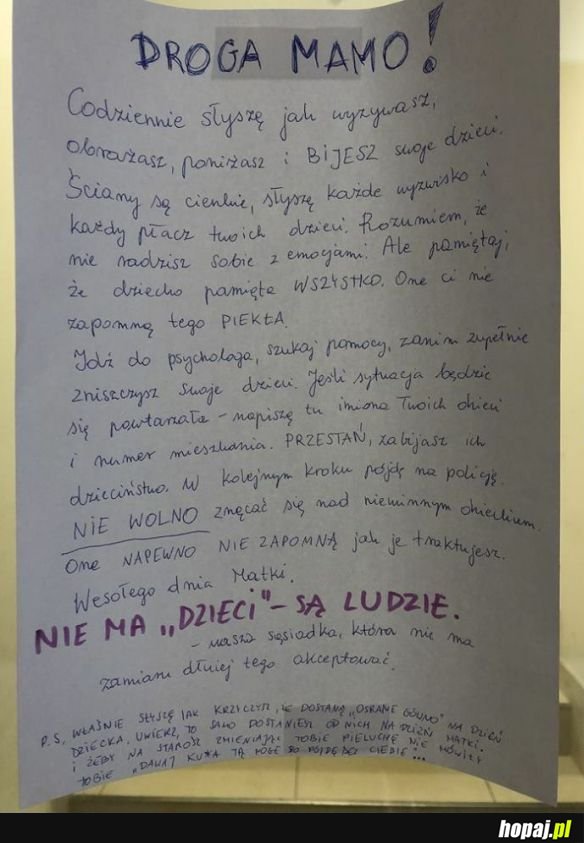 DROGA MAMO!
Codziennie słyszę jak wyzywasz,
obrażasz, poniżasz i BIJESZ swoje dzieci.
Ściany są cienkie, słyszę każde wyzwisko i
każdy płacz twoich dzieci. Rozumiem, że
nie radzisz sobie z emocjami. Ale pamiętaj,
że dziecko pamięta WSZYSTKO. One ci nie
zapomną tego PIEKŁA.
Idź do psychologa, szukaj pomocy, zanim zupełnie
zniszczysz swoje dzieci. Jeśli sytuacja będzie
się powtarzała - napiszę tu imiona Twoich dzieci
i numer mieszkania. PRZESTAŃ, zabijasz ich
dzieciństwo. W kolejnym kroku pójdę na policję.
NIE WOLNO znęcać się nad niewinnym dzieckiem.
One NAPEWNO NIE ZAPOMNĄ jak je traktujesz.
Wesołego dnia Matki.
NIE MA „DZIECI" - SĄ LUDZIE.
- wasza sąsiadka, która nie ma
zamiaru dłużej tego akceptować.
P.S. WŁAŚNIE SŁYSZĘ JAK KRZYCZYSZ, ŻE DOSTANĄ „OSRANE GÓWNO" NA DZIEŃ
DZIECKA, UWIERZ, TO SAMO DOSTANIESZ OD NICH NA DZIEŃ MATKI.
I ŻEBY NA STAROŚĆ ZMIENIAJĄC TOBIE PIELUCHĘ NIE MÓWIŁY
TOBIE „DAWAJ KURWA TĄ NOGĘ BO
hopaj.pl